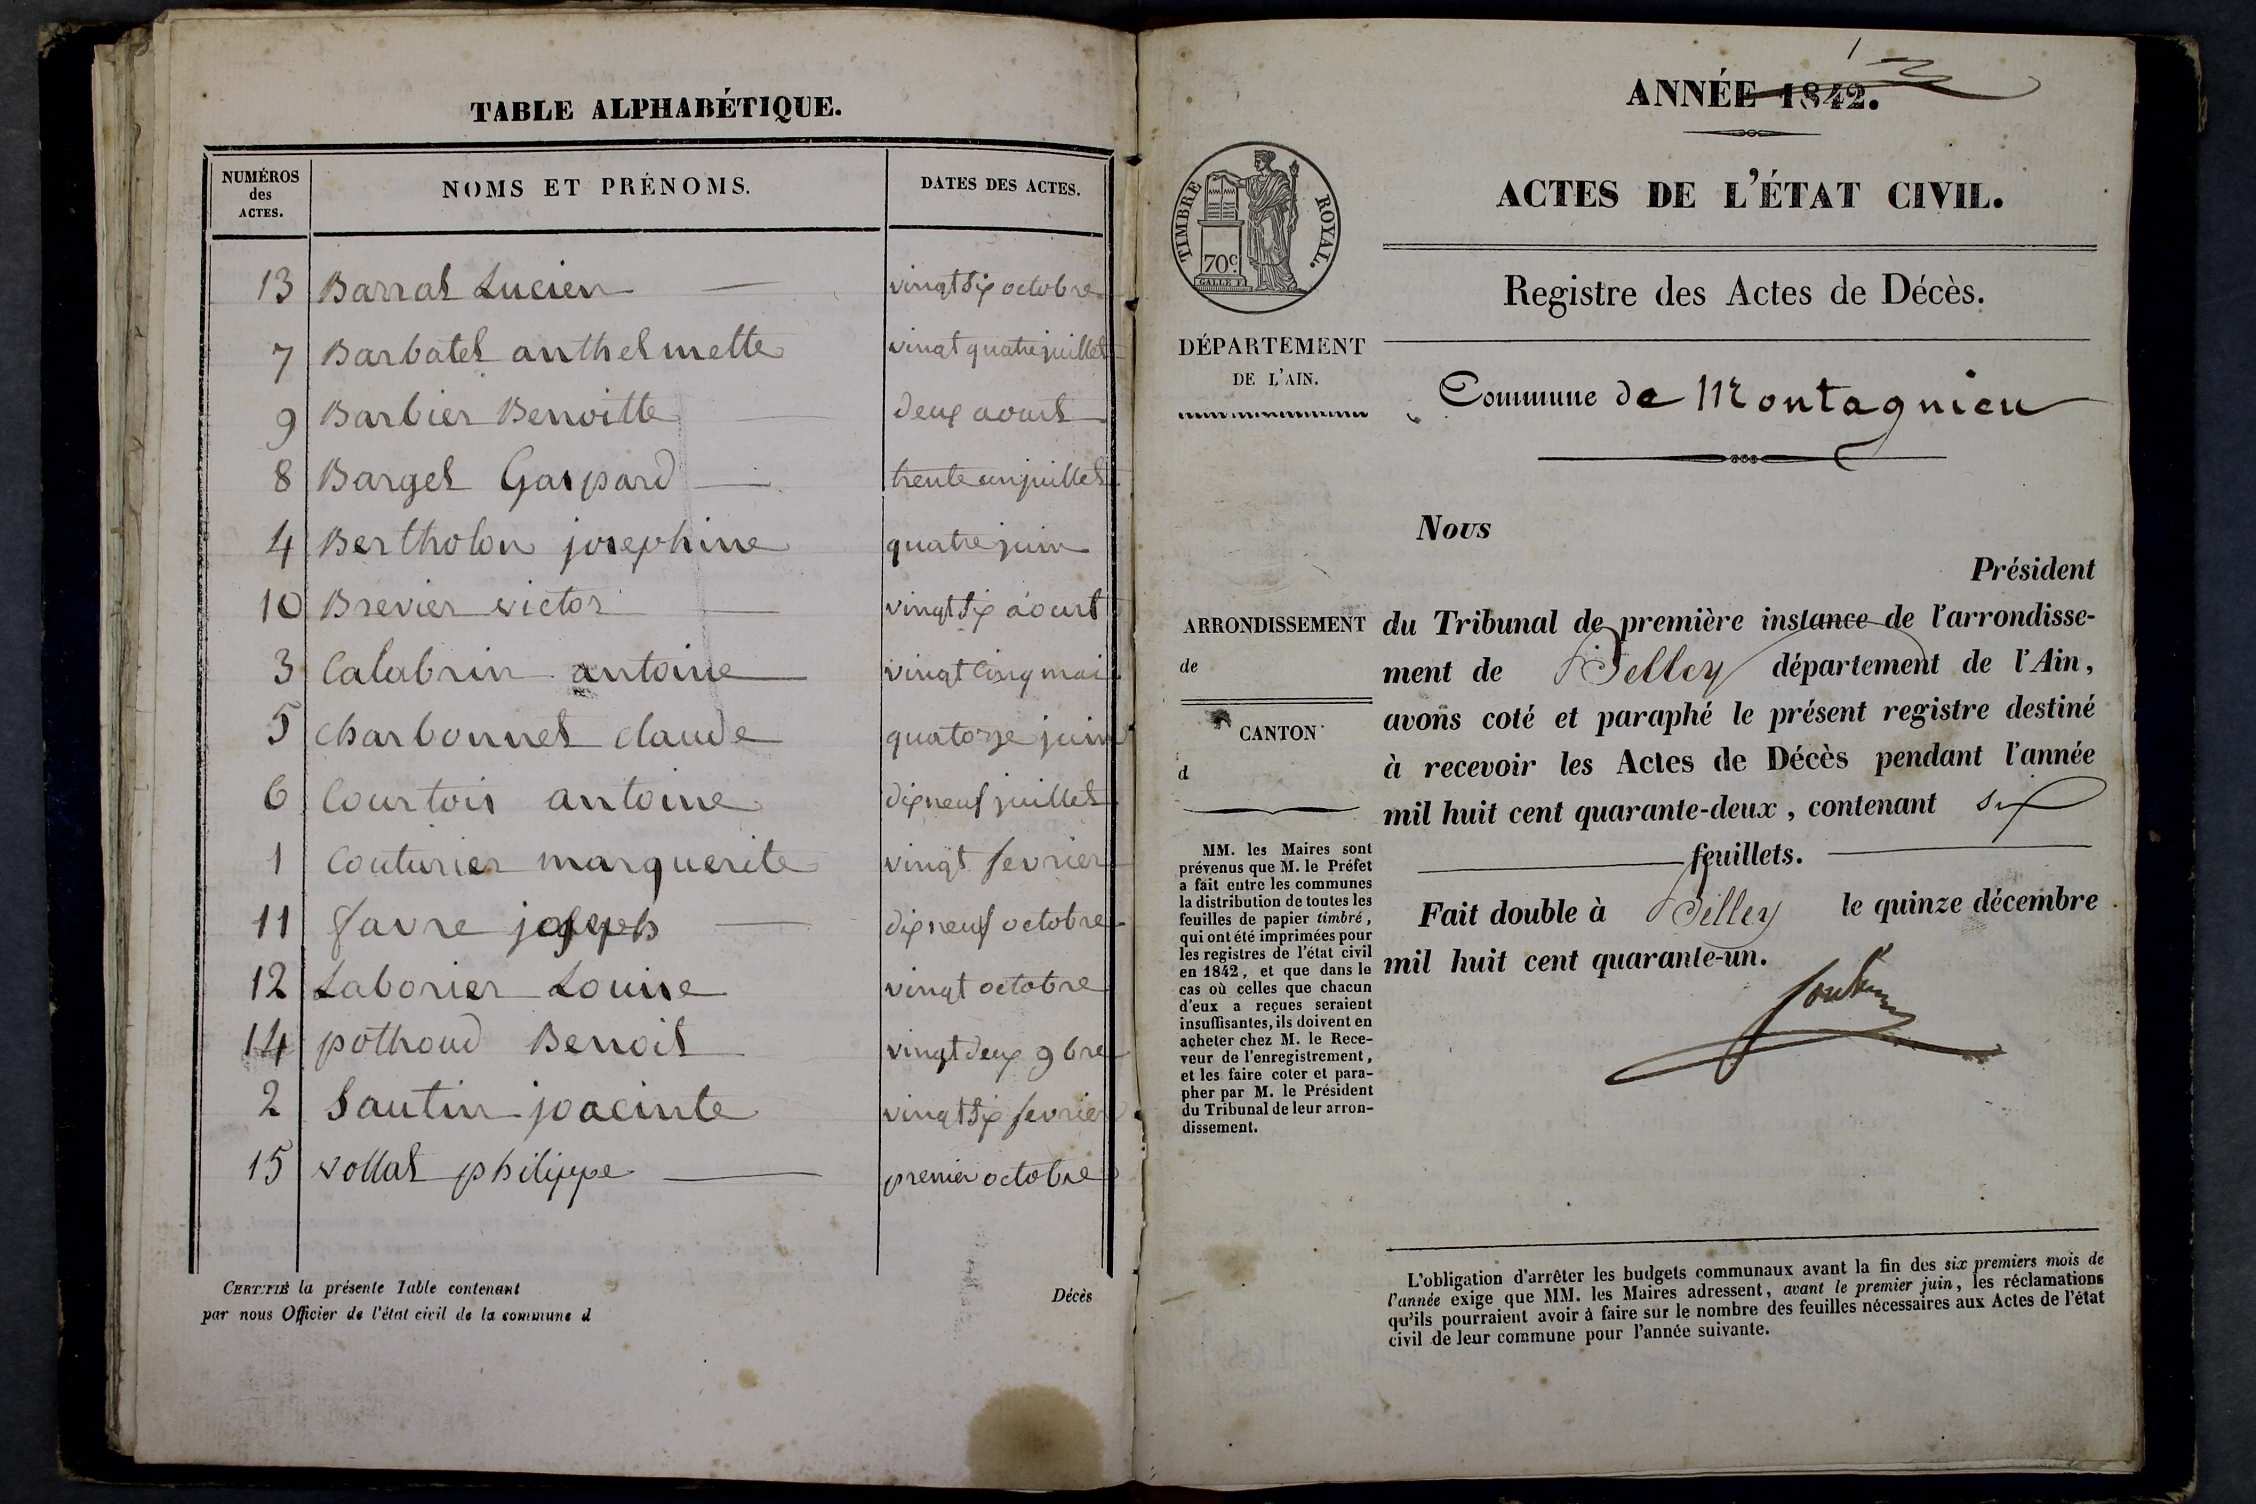 TABLE ALPHABÉTIQUE.
NUMÉROS des ACTES. NOMS ET PRÉNOMS. DATES DES ACTES.
13 Barral Lucien vingt six octobre
7 Barbatel anthelmette vingt quatre juillet
9 Barbier Benoitte deux aoust
8 Barget Gaspard trente un juillet
4 Bertholon josephine quatre juin
10 Brevier victor vingt six aoust
3 Calabrin antoine vingt cinq mai
5 Charbonnet claude quatorze juin
6 Courtois antoine dix neuf juillet
1 Couturier marguerite vingt fevrier
11 favre joseph dix neuf octobre
12 Laborier Louise vingt octobre
14 pothoud Benoit vingt deux 9bre
2 Sautin joacinte vingt six fevrier
15 vollat philippe premier octobre
CERTIFIÉ la présente Table contenant Décès
par nous Officier de l'état civil de la commune d
1
ANNÉE 1842.
ACTES DE L'ÉTAT CIVIL.
TIMBRE ROYAL.
70c.
Registre des Actes de Décès.
DÉPARTEMENT
DE L'AIN.
Commune de Montagnieu
Nous
Président
ARRONDISSEMENT
de
CANTON
d
du Tribunal de première instance de l'arrondisse-
ment de Belley département de l'Ain,
avons coté et paraphé le présent registre destiné
à recevoir les Actes de Décès pendant l'année
mil huit cent quarante-deux, contenant six
feuillets.
Fait double à Belley le quinze décembre
mil huit cent quarante-un.
MM. les Maires sont
prévenus que M. le Préfet
a fait entre les communes
la distribution de toutes les
feuilles de papier timbré,
qui ont été imprimées pour
les registres de l'état civil
en 1842, et que dans le
cas où celles que chacun
d'eux a reçues seraient
insuffisantes, ils doivent en
acheter chez M. le Rece-
veur de l'enregistrement,
et les faire coter et para-
pher par M. le Président
du Tribunal de leur arron-
dissement.
L'obligation d'arrêter les budgets communaux avant la fin des six premiers mois de
l'année exige que MM. les Maires adressent, avant le premier juin, les réclamations
qu'ils pourraient avoir à faire sur le nombre des feuilles nécessaires aux Actes de l'état
civil de leur commune pour l'année suivante.